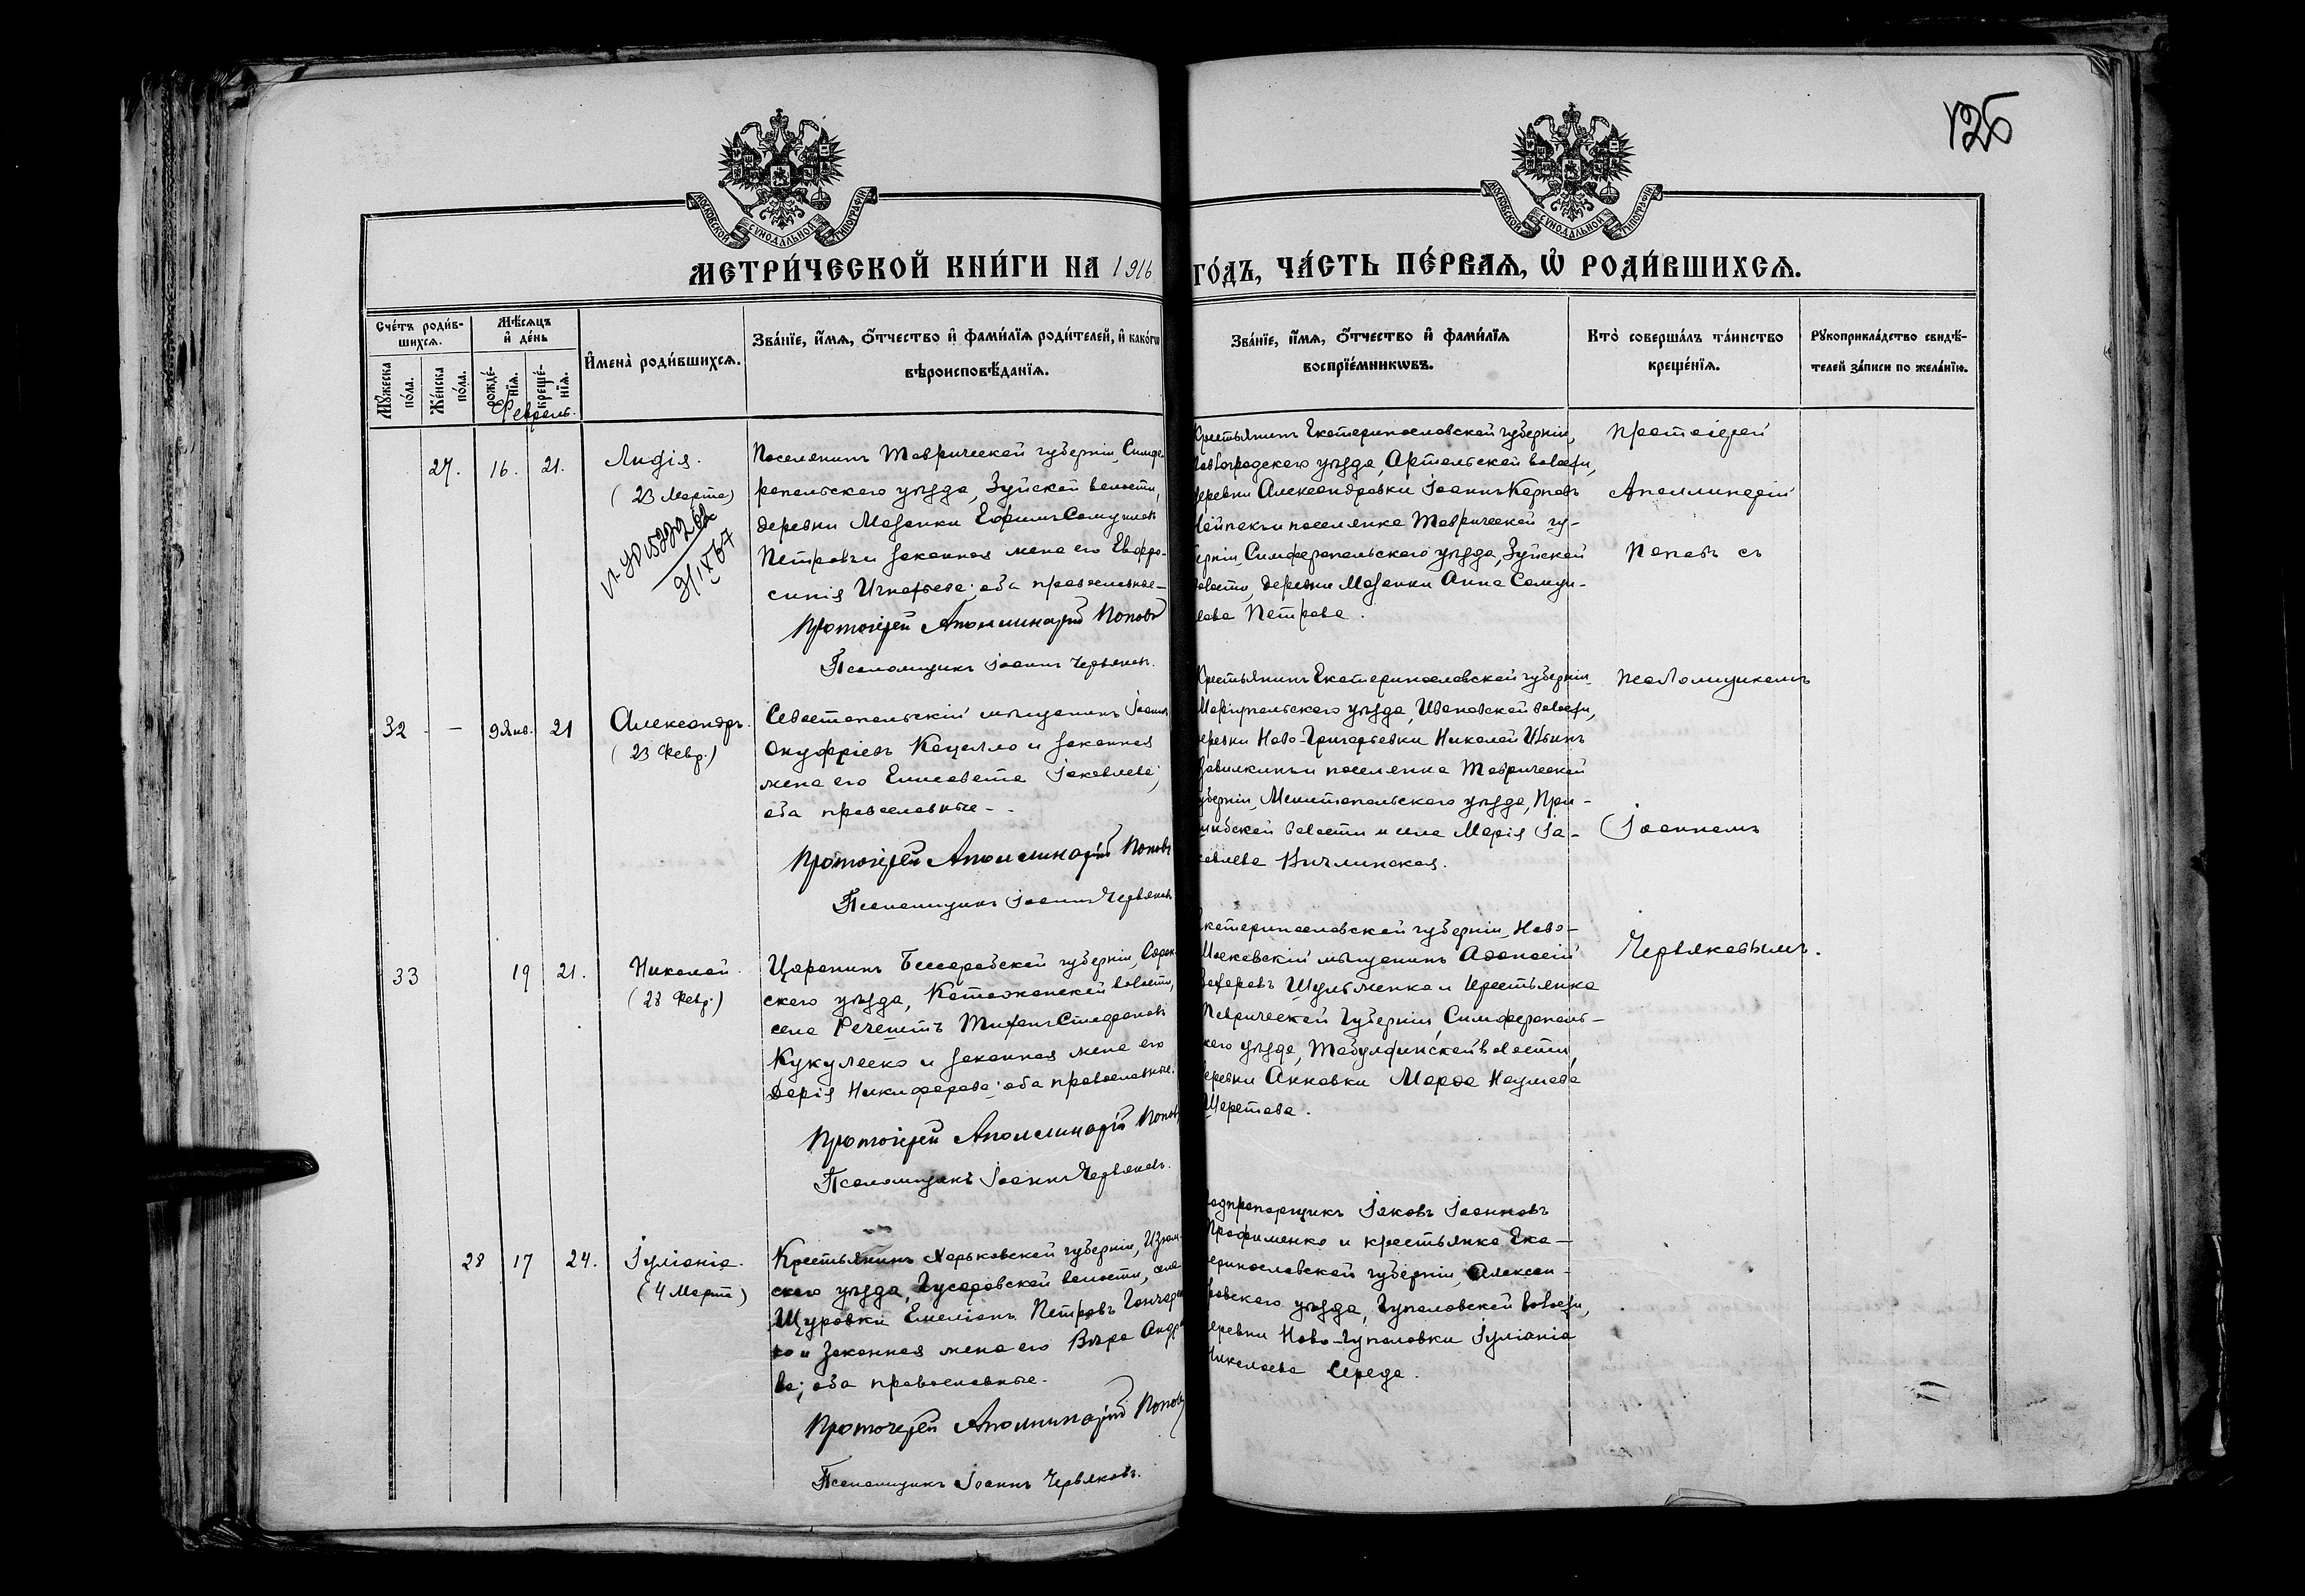 126
МОСКОВСКОЙ СУНОДАЛЬНОЙ ТИПОГРАФІИ
МОСКОВСКОЙ СУНОДАЛЬНОЙ ТИПОГРАФІИ
МЕТРИ́ЧЕСКОЙ КНИ́ГИ НА 1916
ГО́ДЪ, ЧА́СТЬ ПЕ́РВАЯ, Ѡ҆ РОДИ́ВШИХСЯ.
Сче́тъ роди́в-
шихся.
Мꙋ́жеска по́ла.
Же́нска по́ла.
Мѣ́сяцъ и҆ де́нь
рожде́-нїя.
креще́-нїя.
Февраль.
И҆мена̀ роди́вшихся.
Зва́нїе, и҆́мя, ѻ҆́тчество и҆ фами́лїя роди́телей, и҆ како́гѡ
вѣроисповѣ́данїя.
Зва́нїе, и҆́мя, ѻ҆́тчество и҆ фами́лїя
воспрїе́мникѡвъ.
Кто̀ соверша́лъ та́инство
креще́нїя.
Рꙋкоприкла́дство свидѣ́-
телей за́писи по жела́нїю.
27. 16. 21.
Лидія.
(23 Марта)
Поселянинъ Таврической губерніи, Симфе-
ропольскаго уѣзда, Зуйской волости,
деревни Мазанки Ефимъ Самуиловъ
Петровъ и законная жена его Евфро-
синія Игнатьева; оба православные
Протоіерей Аполлинарій Поповъ
Псаломщикъ Іоаннъ Червяковъ.
Крестьянинъ Екатеринославской губерніи,
Павлоградскаго уѣзда, Артельской волости,
деревни Александровки Іоаннъ Карповъ
и поселянка Таврической гу-
берніи, Симферопольскаго уѣзда, Зуйской
волости, деревни Мазанки Анна Самуи-
лова Петрова.
Протоіерей
Аполлинарій
Поповъ съ
32 - 9 Янв. 21
Александръ.
(23 Февр.)
Севастопольскій мѣщанинъ Іоаннъ
Онуфріевъ Кацелло и законная
жена его Елисавета Іаковлева;
оба православные -
Протоіерей Аполлинарій Поповъ
Псаломщикъ Іоаннъ Червяковъ
Крестьянинъ Екатеринославской губерніи,
Маріупольскаго уѣзда, Ивановской волости,
деревни Ново-Григорьевки Николай Ильинъ
и поселянка Таврической
губерніи, Мелитопольскаго уѣзда, При-
шибской волости и села Марія Іа-
ковлева
псаломщикомъ
Іоанномъ
33 19 21.
Николай.
(23 Февр.)
Царанинъ Бессарабской губерніи, Сорок-
скаго уѣзда, волости,
села Речешть Тихонъ Стефановъ
Кукулеско и законная жена его
Дарія Никифорова; оба православные.
Протоіерей Аполлинарій Поповъ
Псаломщикъ Іоаннъ Червяковъ.
Екатеринославской губерніи, Ново-
Московскій мѣщанинъ Аѳанасій
Захаровъ Шульменко и крестьянка
Таврической губерніи, Симферополь-
скаго уѣзда, Табулдинской волости,
деревни Анновки Марѳа Наумова
Шеретова.
Червяковымъ.
28 17 24.
Іуліанія.
(4 Марта)
Крестьянинъ Харьковской губерніи, Изюм-
скаго уѣзда, Гусаровской волости, села
Щуровки Емеліанъ Петровъ Гончарен-
ко и законная жена его Вѣра Андрее-
ва; оба православные.
Протоіерей Аполлинарій Поповъ
Псаломщикъ Іоаннъ Червяковъ.
Подпрапорщикъ Іаковъ Іоанновъ
Трофименко и крестьянка Ека-
теринославской губерніи, Алексан-
дровскаго уѣзда, Гупаловской волости,
деревни Ново-Гупаловки Іуліанія
Николаева Середа.